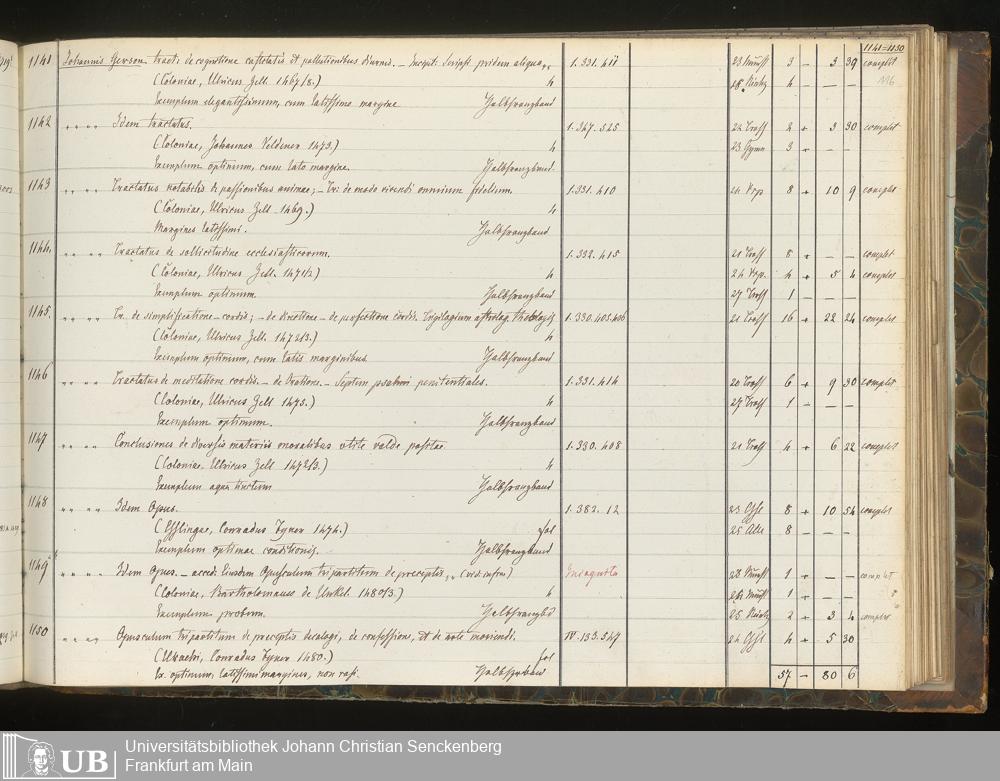 1141=1150
1141 Johannis Gerson tract: de cognitione castitatis et pollutionibus diurnis. – Incipit: Scripsi pridem aliqua „ 1. 331. 411 3 – 3 39 complet
(Coloniae, Ulricus Zell 1467/8.) 4 4 – – –
Exemplum elegantissimum, cum latissimo margine Halbfranzband
1142 „ „ „ „ Idem tractatus. 1. 367. 525 2 – 3 30 complet
(Coloniae, Johannes Veldener 1473.) 4 3 – – –
Exemplum optimum, cum lato margine. Halbfranzband
1143 „ „ „ „ Tractatus notabilis de passionibus animae; – Tr: de modo vivendi omnium fidelium. 1. 331. 410 8 – 10 9 complet
(Coloniae, Ulricus Zell 1469.) 4
Margines latissimi. Halbfranzband
1144. „ „ „ „ Tractatus de sollicitudine ecclesiasticorum. 1. 332. 415 8 – – – complet
(Coloniae, Ulricus Zell. 1471/2) 4 4 – 5 4 complet
Exemplum optimum. Halbfranzband 1 – – –
1145. „ „ „ „ Tr. de simplificatione cordis; – de directione – de perfectione cordis. 1. 330. 405. 406 16 – 22 24 complet
(Coloniae, Ulricus Zell. 1472/3.) 4
Exemplum optimum, cum latis marginibus. Halbfranzband
1146 „ „ „ „ Tractatus de meditatione cordis. – de Oratione. – Septem psalmi penitentiales. 1. 331. 414 6 – 9 30 complet
(Coloniae, Ulricus Zell 1475.) 4 1 – – –
Exemplum optimum. Halbfranzband
1147 „ „ „ „ Conclusiones de diversis materiis moralibus utile valde positae. 1. 330. 408 4 – 6 22 complet
(Coloniae. Ulricus Zell 1472/3.) 4
Exemplum aqua tinctum Halbfranzband
1148 „ „ „ „ Idem Opus. 1. 382. 12 8 – 10 54 complet
(Esslingae, Conradus Fyner 1474.) fol 8 – – –
Exemplum optimae conditionis. Halbfranzband
1149 „ „ „ „ Idem Opus. – acced: Eiusdem Opusculum tripartitum de preceptis, „ (vid. infra) Incognita 1 – – – complet
(Coloniae, Bartholomaeus de Unkel. 1480/3.) 4 1 – – –
Exemplum probum. Halbfranzbd 2 – 3 4 complet
1150 „ „ „ „ Opusculum tripartitum de preceptis decalogi, de confessione, et de arte moriendi. IV. 133. 549 4 – 5 30
(Urachi, Conradus Fyner 1480.) fol
Ex. optimum, latissimi margines, non raß. Halbfranzband 57 – 80 6
UB
Universitätsbibliothek Johann Christian Senckenberg
Frankfurt am Main